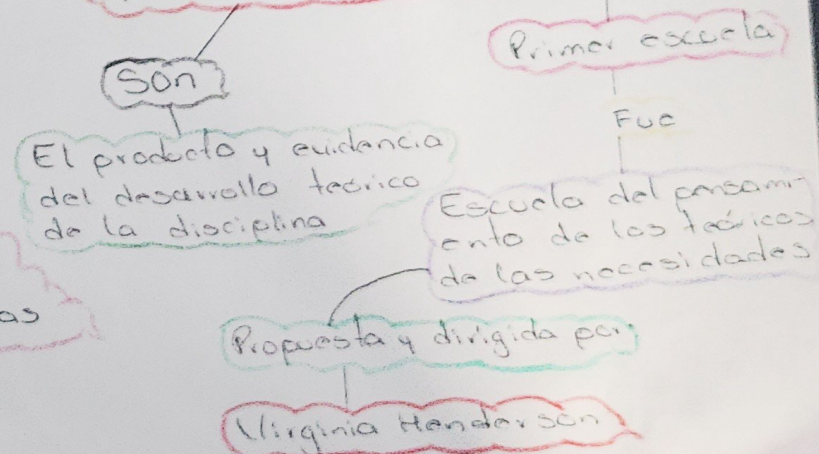 Son
El producto y evidencia
del desarrollo teórico
de la disciplina
Primer escuela
Fue
Escuela del pensami-
ento de los teóricos
de las necesidades
as
Propuesta y dirigida por:
Virginia Henderson